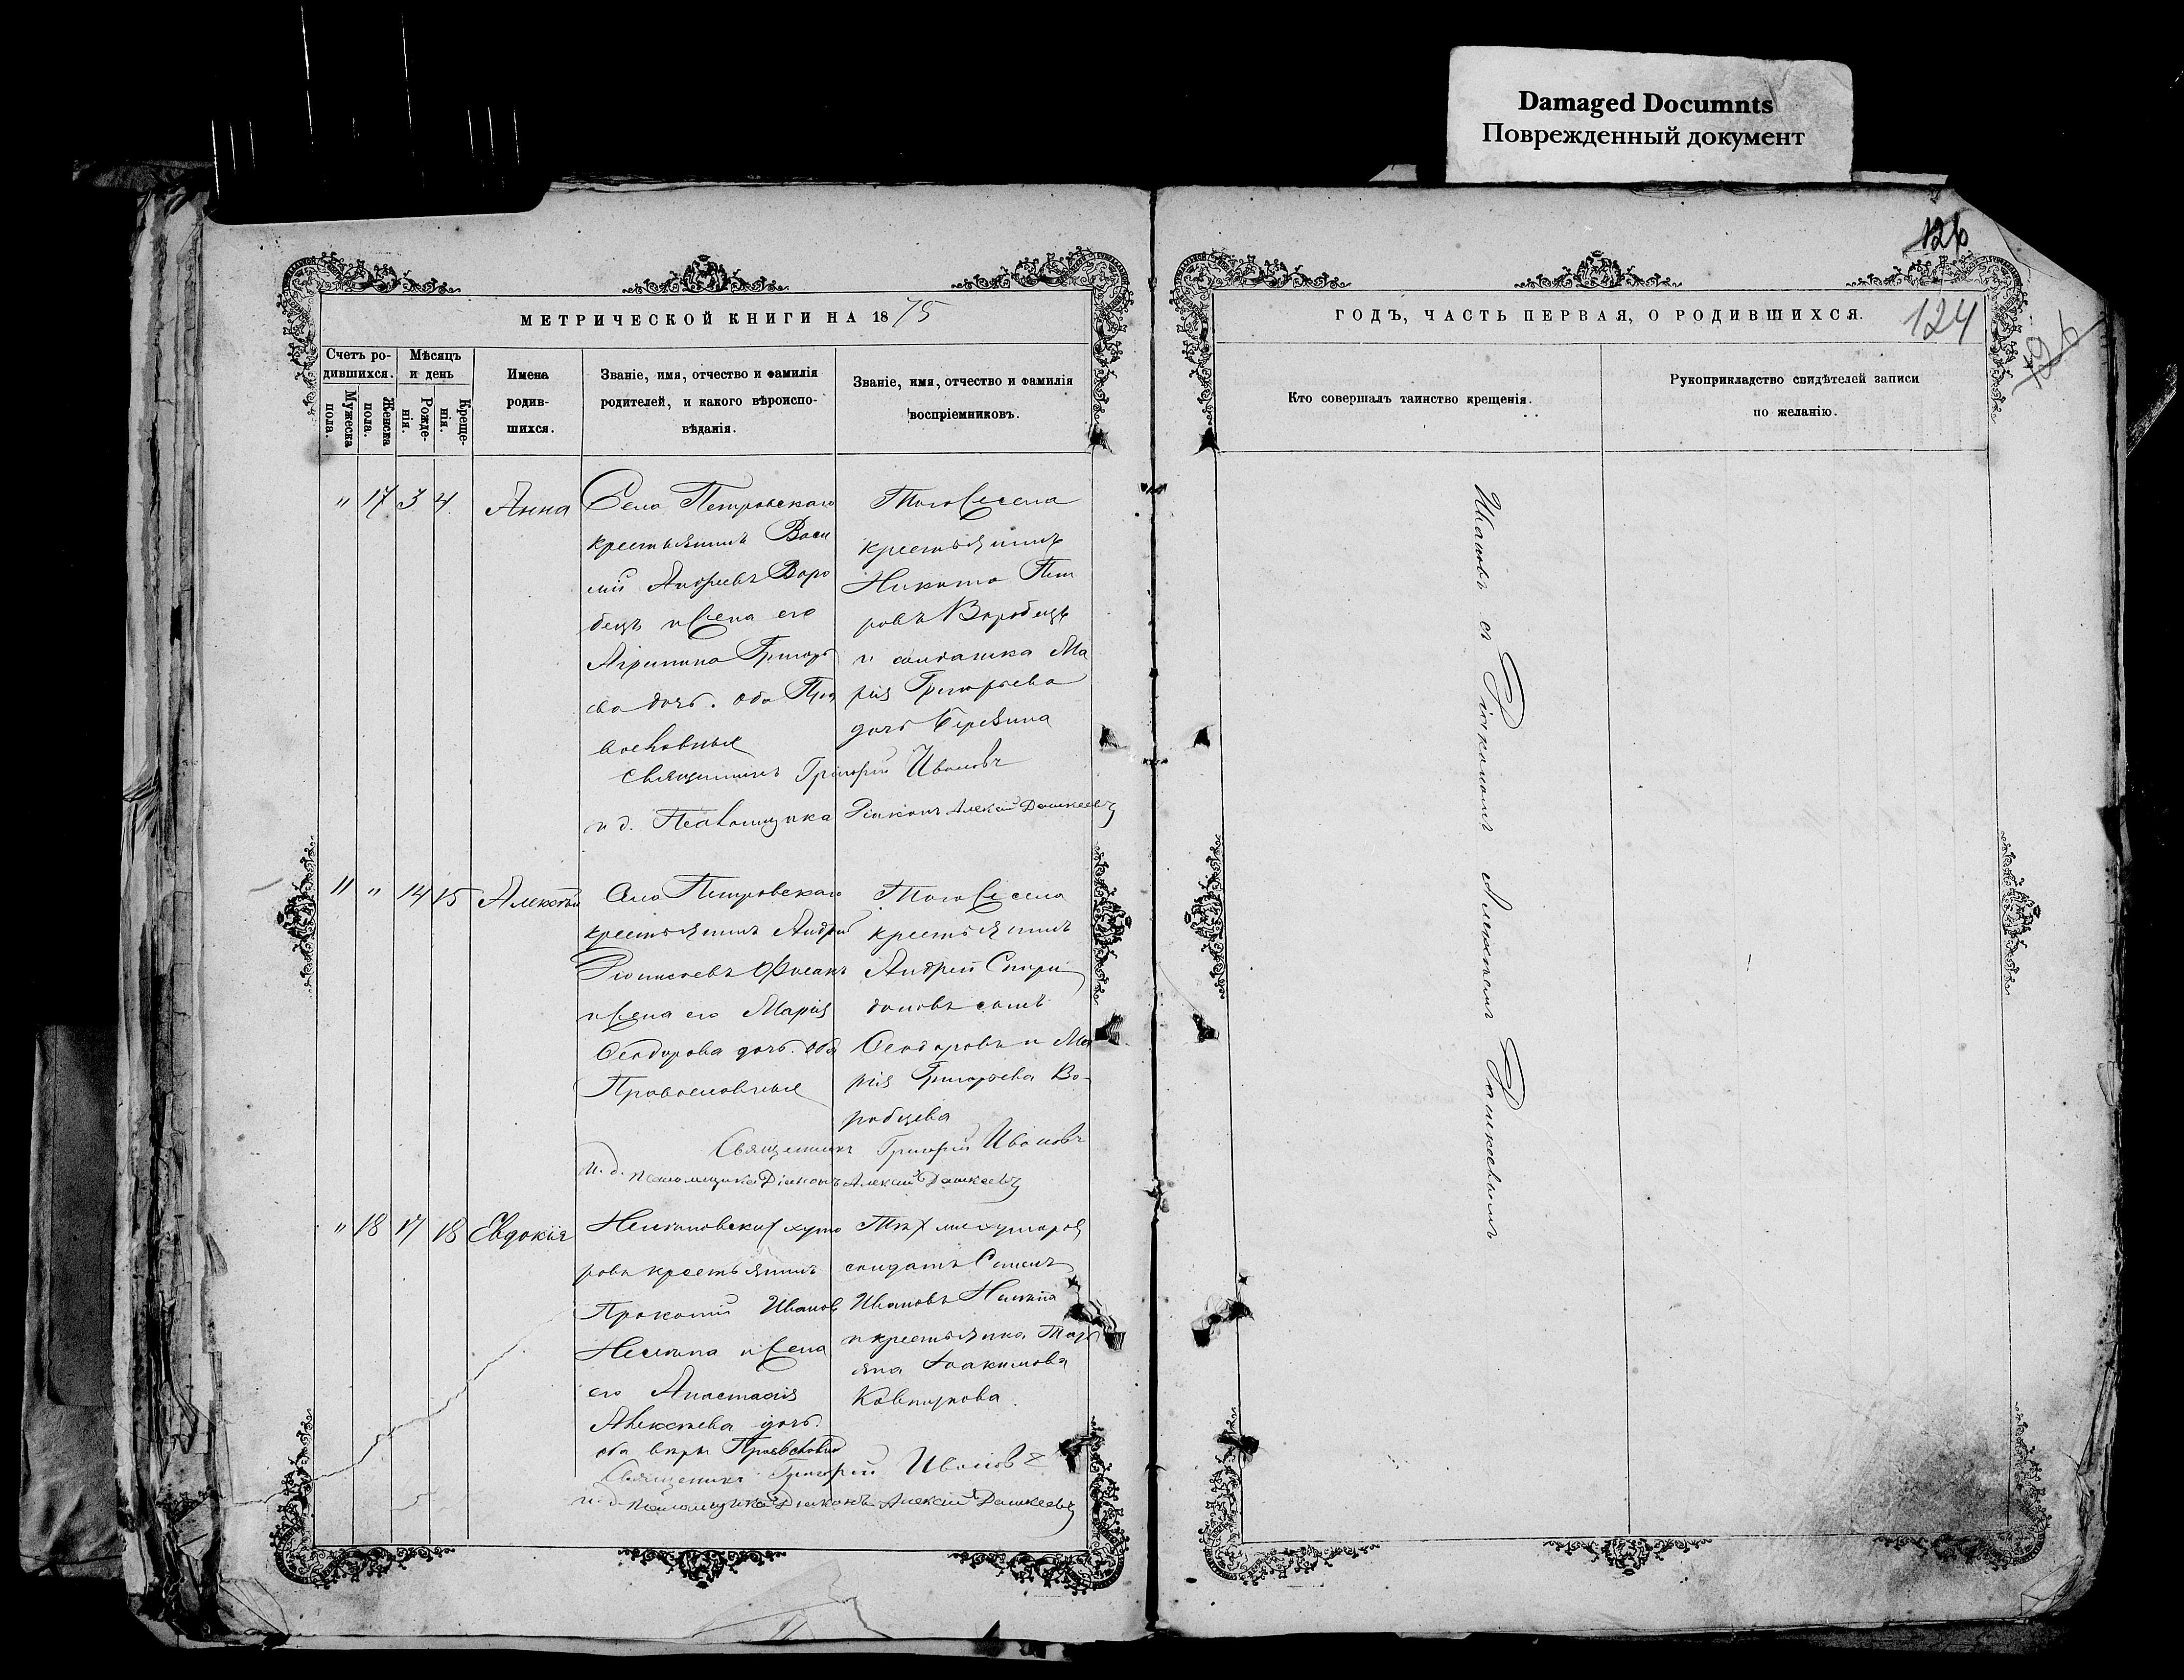 Damaged Documnts
Поврежденный документ
126
МЕТРИЧЕСКОЙ КНИГИ НА 1875
Счетъ ро-
дившихся.
Мужеска
пола.
Женска
пола.
Мѣсяцъ
и день
Рожде-
нія.
Креще-
нія.
Имена
родив-
шихся.
Званіе, имя, отчество и фамилія
родителей, и какого вѣроиспо-
вѣданія.
Званіе, имя, отчество и фамилія
воспріемниковъ.
" 17 3 4. Анна
Села Петровскаго
крестьянинъ Васи
лій Андреевъ Воро
бецъ и жена его
Агрипина Григорь
ева дочь. оба Пра
вославные
Того же села
крестьянинъ
Никита Пет
ровъ Воробецъ
и солдатка Ма
рія Григорьева
дочь
Священникъ Григорій Ивановъ
и. д. Псаломщика Діаконъ Алексій Дашкеевъ
11 " 14 15 Алексѣй
Села Петровскаго
крестьянинъ Андрей
и жена его Марія
Ѳеодорова дочь. оба
Православные
Того же села
крестьянинъ
Андрей Спири
доновъ сынъ
Ѳеодоровъ и Ма
рія Григорьева Во-
робцева
Священникъ Григорій Ивановъ
и. д. псаломщика Діаконъ Алексій Дашкеевъ
" 18 17 18 Евдокія
хуто
ровъ крестьянинъ
Прокопій Иванов
и жена
его Анастасія
Алексѣева дочь.
оба вѣры Православной
Тѣхъ же хуторов
солдатъ
Ивановъ
и крестьянка Тать
яна Іоакимова
Священникъ Григорій Ивановъ
и. д. псаломщика Діаконъ Алексій Дашкеевъ
ГОДЪ, ЧАСТЬ ПЕРВАЯ, О РОДИВШИХСЯ.
124
126
Кто совершалъ таинство крещенія.
Рукоприкладство свидѣтелей записи
по желанію.
Ивановъ съ Діакономъ Алексѣемъ Дашкевимъ